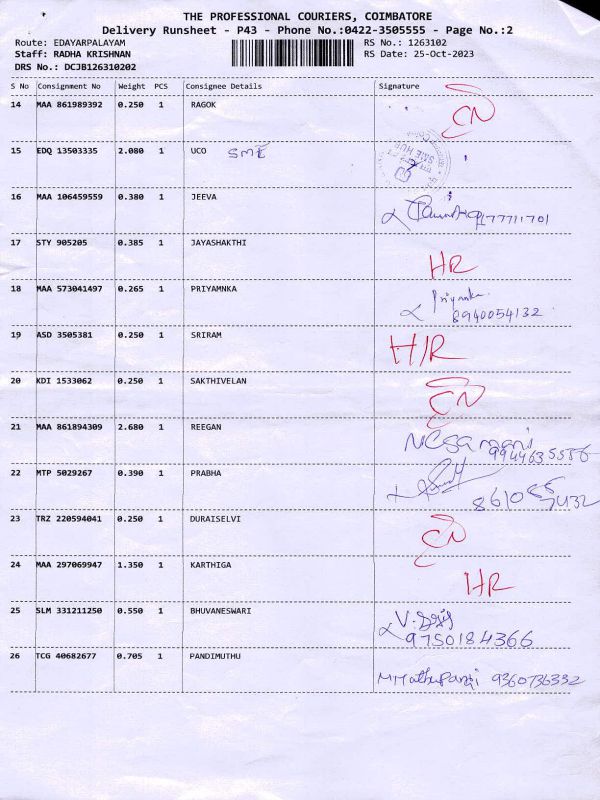 THE PROFESSIONAL COURIERS, COIMBATORE
Delivery Runsheet - P43 - Phone No.:0422-3505555 - Page No.:2
Route: EDAYARPALAYAM RS No.: 1263102
Staff: RADHA KRISHNAN RS Date: 25-Oct-2023
DRS No.: DCJB126310202
S No Consignment No Weight PCS Consignee Details Signature
14 MAA 861989392 0.250 1 RAGOK
15 EDQ 13503335 2.080 1 UCO SME
16 MAA 106459559 0.380 1 JEEVA
17 STY 905205 0.385 1 JAYASHAKTHI HR
18 MAA 573041497 0.265 1 PRIYAMNKA Priyanka
8940054132
19 ASD 3505381 0.250 1 SRIRAM H/R
20 KDI 1533062 0.250 1 SAKTHIVELAN
21 MAA 861894309 2.680 1 REEGAN Nesamani
9944635556
22 MTP 5029267 0.390 1 PRABHA
23 TRZ 220594041 0.250 1 DURAISELVI
24 MAA 297069947 1.350 1 KARTHIGA HR
25 SLM 331211250 0.550 1 BHUVANESWARI
9750184366
26 TCG 40682677 0.705 1 PANDIMUTHU 9360736332